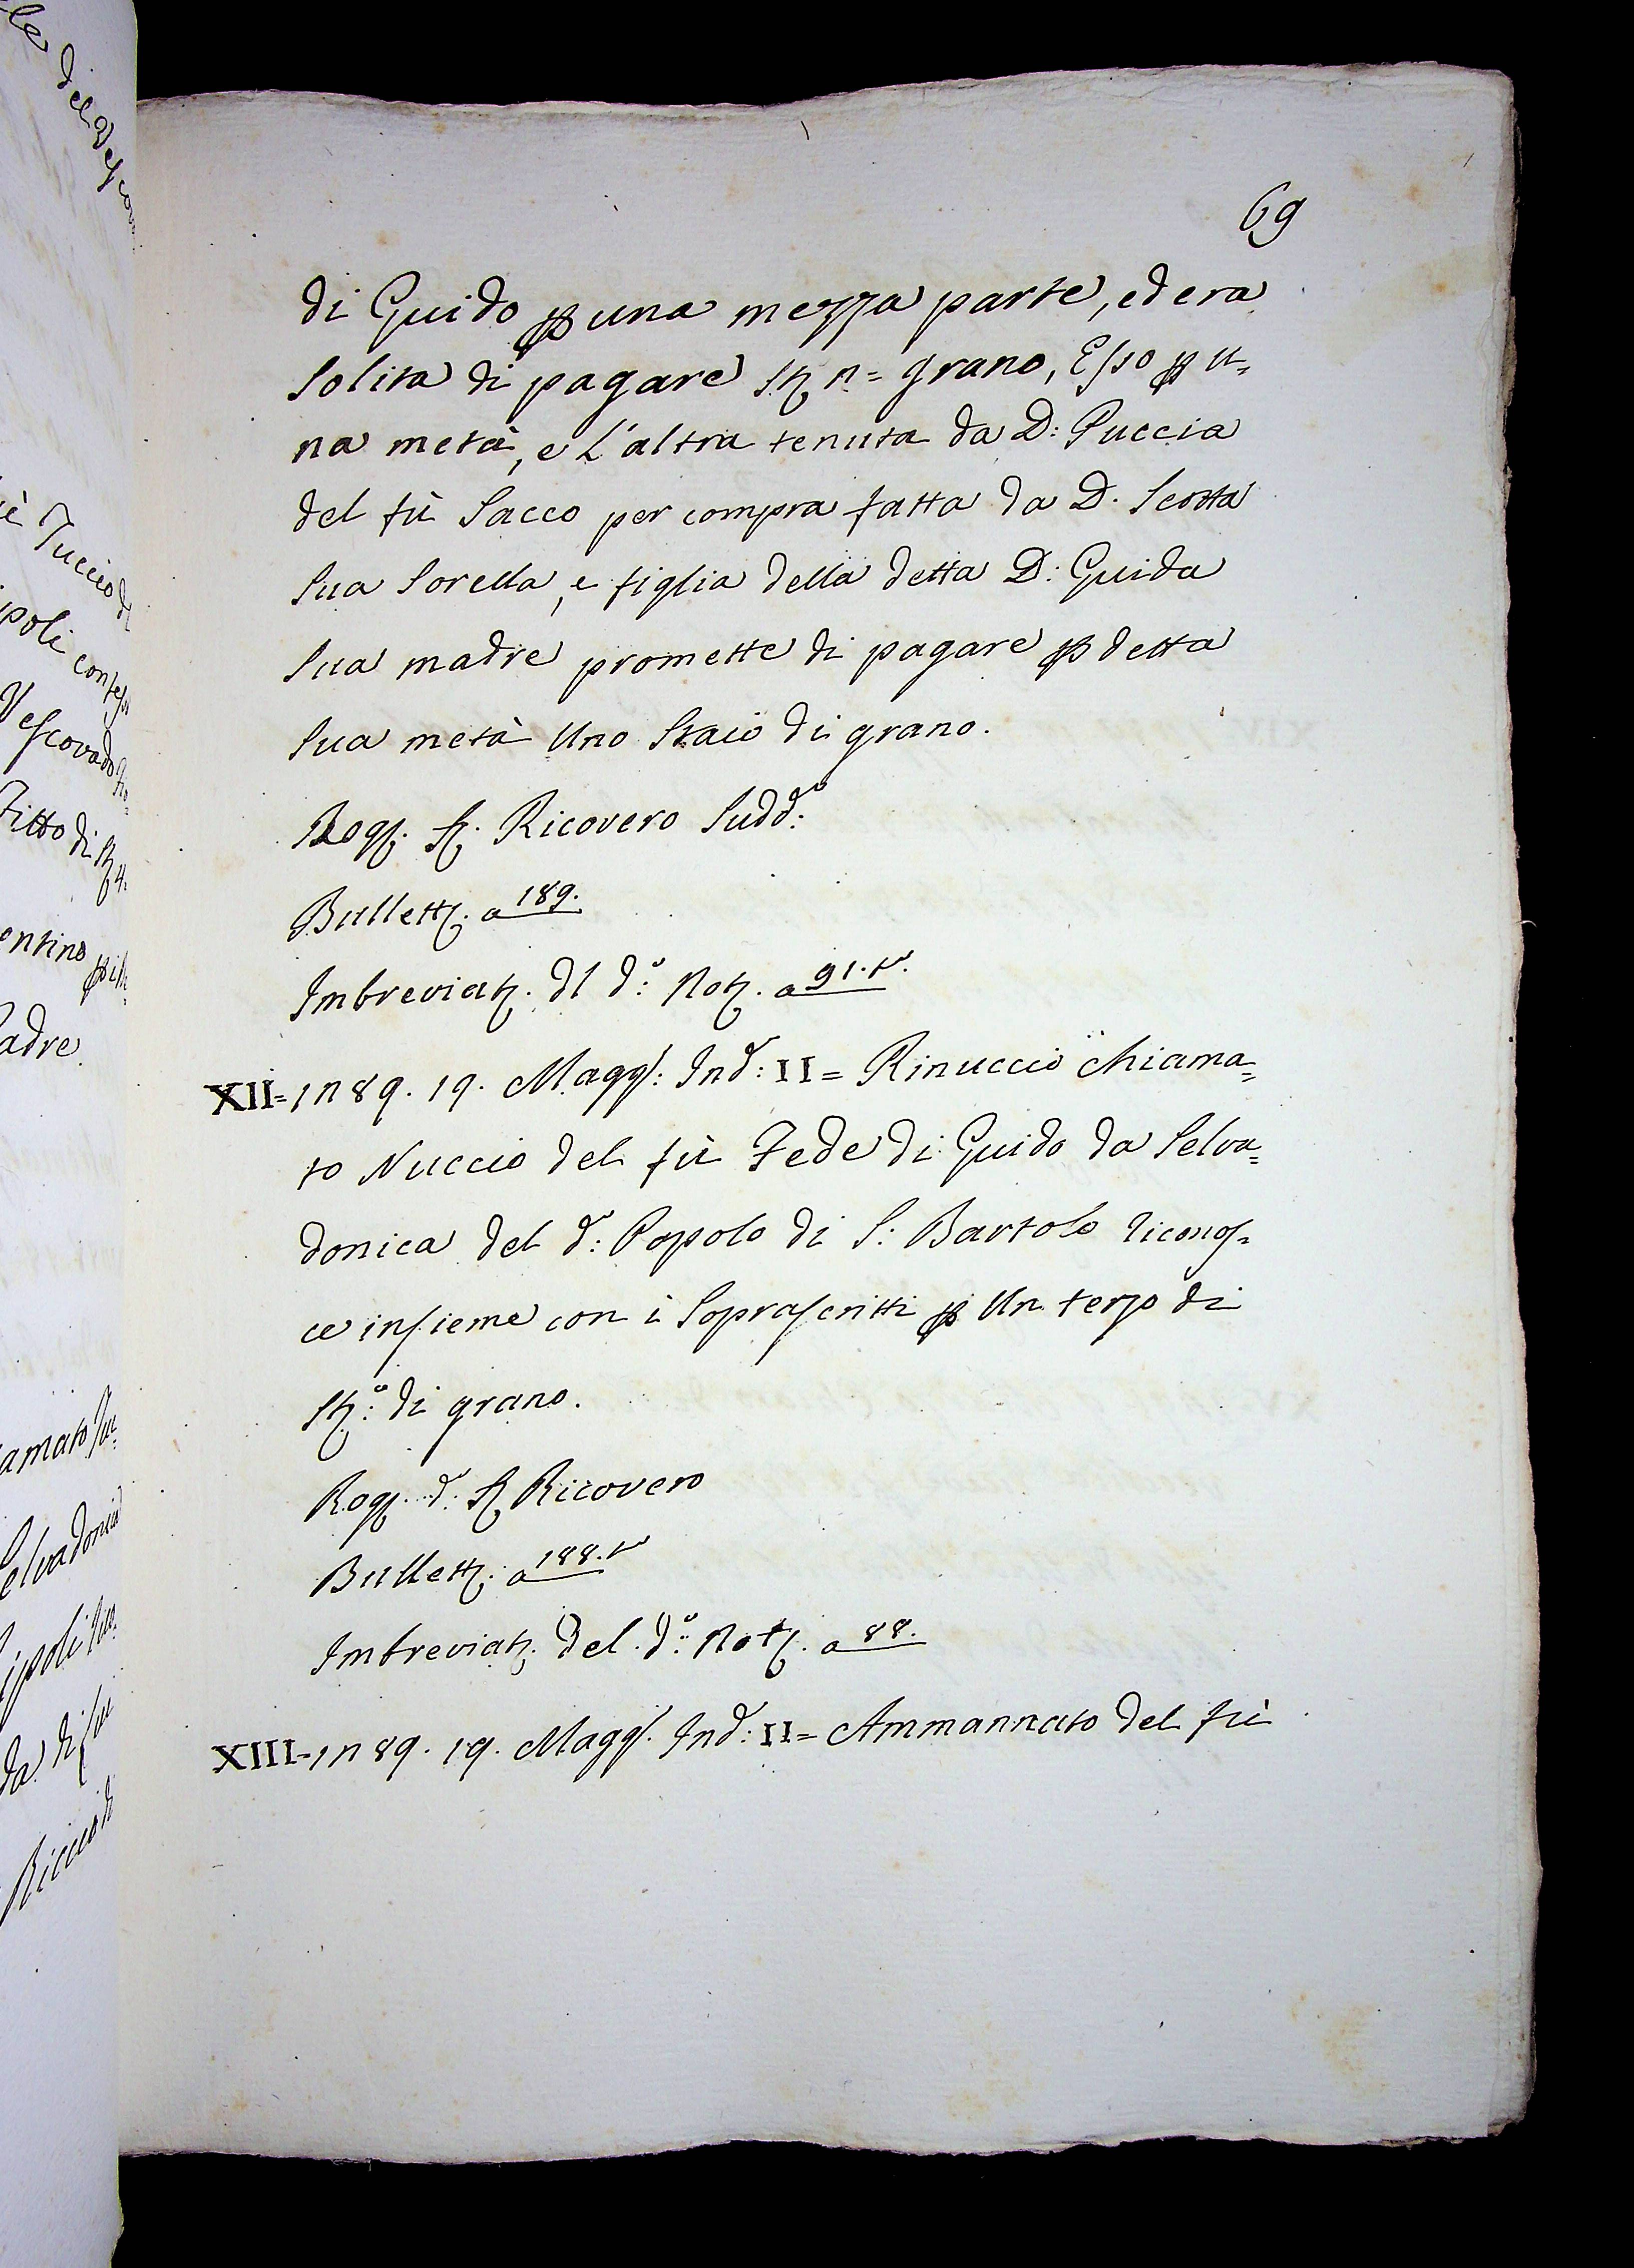 69
di Guido p una mezza parte, ed era
solita di pagare St 2 = grano, Esso p u=
na metà, e L'altra tenuta da D: Puccia
del fù Sacco per compra fatta da D. Scotta
sua Sorella, e figlia della detta D: Guida
sua madre promette di pagare p detta
sua metà Uno Staio di grano.
Rog. S. Ricovero Sudd.º
Bullett. a 189.
Imbreviat. dl d.º Not. a 91.t.º
XII= 1289. 19. Magg: Ind: II = Rinuccio chiama=
to Nuccio del fù Fede di Guido da Selva=
donica del d.º Popolo di S: Bartolo riconos=
ce insieme con i Soprascritti p Un terzo di
St.º di grano.
Rog. d.º S. Ricovero
Bullett. a 188.t.º
Imbreviat. del d.º Not. a 88.
XIII= 1289. 19. Magg. Ind: II = Ammannato del fù